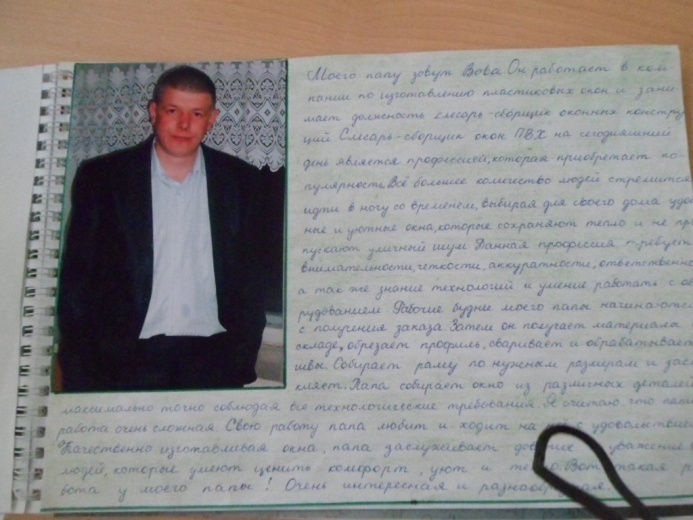 Моего папу зовут Вова. Он работает в ком
пании по изготовлению пластиковых окон и зани-
мает должность слесарь-сборщик оконных констру
ций Слесарь-сборщик окон ПВХ на сегодняшний
день является профессией, которая приобретает по-
пулярность. Всё большее количество людей стремится
идти в ногу со временем, выбирая для своего дома удоб
ные и уютные окна, которые сохраняют тепло и не про
пускают уличный шум Данная профессия требует
внимательности, чёткости, аккуратности, ответственно
а так же знание технологий и умение работать с об
рудованием Рабочие будни моего папы начинаются
с получения заказа Затем он получает материала
складе, обрезает профиль, сваривает и обрабатывает
швы. Собирает раму по нужным размерам и
Папа собирает окно из различных деталей
максимально точно соблюдая все технологические требования. Я считаю, что папи
работа очень сложная. Свою работу папа любит и ходит на с удовольствием
Качественно изготавливая окна, папа заслуживает уважение
людей, которые умеют ценить комфорт, уют и Вот такая р
бота у моего папы! Очень интересная и